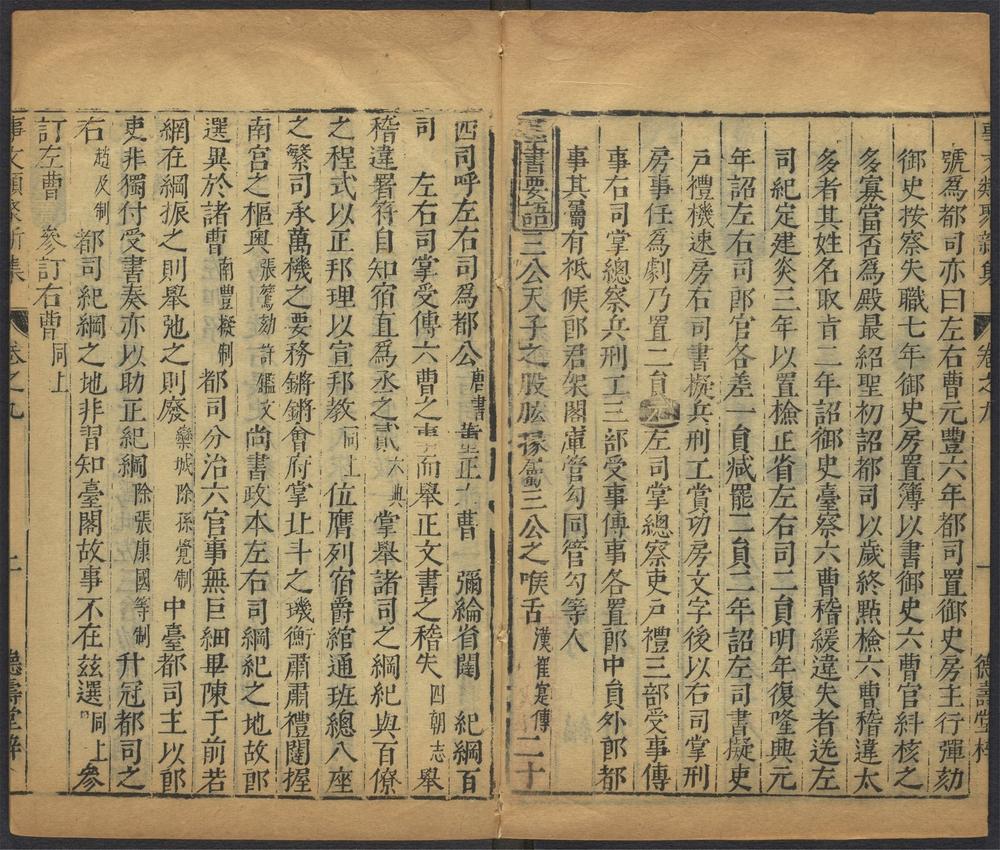 事文類聚新集 卷之九 一 德壽堂梓
號為都司亦曰左右曹元豐六年都司置御史房主行彈劾
御史按察失職七年御史房置簿以書御史六曹官糾核之
多寡當否為殿最紹聖初詔都司以歲終點檢六曹稽違太
多者其姓名取旨二年詔御史臺察六曹稽緩違失者送左
司紀定建炎三年以置檢正省左右司二員明年復隆興元
年詔左右司郎官各差一員減罷二員三年詔左司書擬吏
戶禮機速房右司書擬兵刑工賞功房文字後以右司掌刑
房事任為劇乃置二員 左司掌總察吏戶禮三部受事傳
事右司掌總察兵刑工三部受事傳事各置郎中員外郎都
事其屬有祗候郎君架閣庫管勾同管勾等人
羣書要語 三公天子之股肱掾屬三公之喉舌 漢崔寔傳 二十
四司呼左右司為都公 唐書 董正六曹 彌綸省闥 紀綱百
司 左右司掌受傳六曹之事而舉正文書之稽失 四朝志 舉
稽違署符自知宿直為丞之貳 六典 掌舉諸司之綱紀與百僚
之程式以正邦理以宣邦教 同上 位膺列宿爵綰通班總八座
之繁司承萬機之要務鏘鏘會府掌北斗之璣衡肅肅禮闈握
南宮之樞奧 張鷟劾許鑑文 尚書政本左右司綱紀之地故郎
選異於諸曹 南豐擬制 都司分治六官事無巨細畢陳于前若
網在綱振之則舉弛之則廢 欒城除孫覺制 中臺都司主以郎
吏非獨付受書奏亦以助正紀綱 除張康國等制 升冠都司之
右 趙及制 都司紀綱之地非習知臺閣故事不在茲選 同上 參
訂左曹 參訂右曹 同上
事文類聚新集 卷之九 二 德壽堂梓